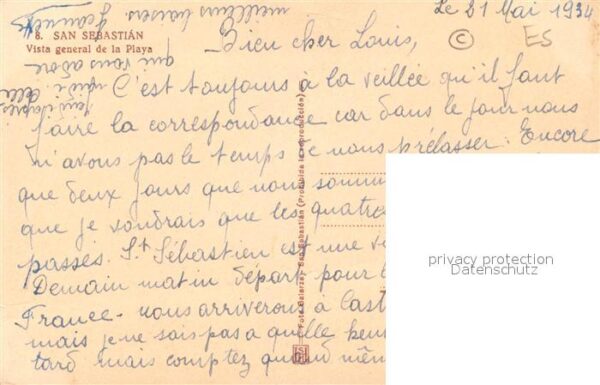 8. SAN SEBASTIÁN
Vista general de la Playa
Le 21 Mai 1934
© ES
Bien cher Louis,
C'est toujours à la veillée qu'il faut
faire la correspondance car dans le jour nous
n'avons pas le temps de nous prélasser. Encore
que deux jours que nous somm
que je voudrais que les quatre
passés. St Sébastien est une vi
Demain matin départ pour l
France. nous arriverons à Cast
mais je ne sais pas a quelle heur
tard mais comptez quand mêm
qui vous adore
meilleurs baisers.
Foto Galarza.- San Sebastián (Prohibida la reproducción)
privacy protection
Datenschutz